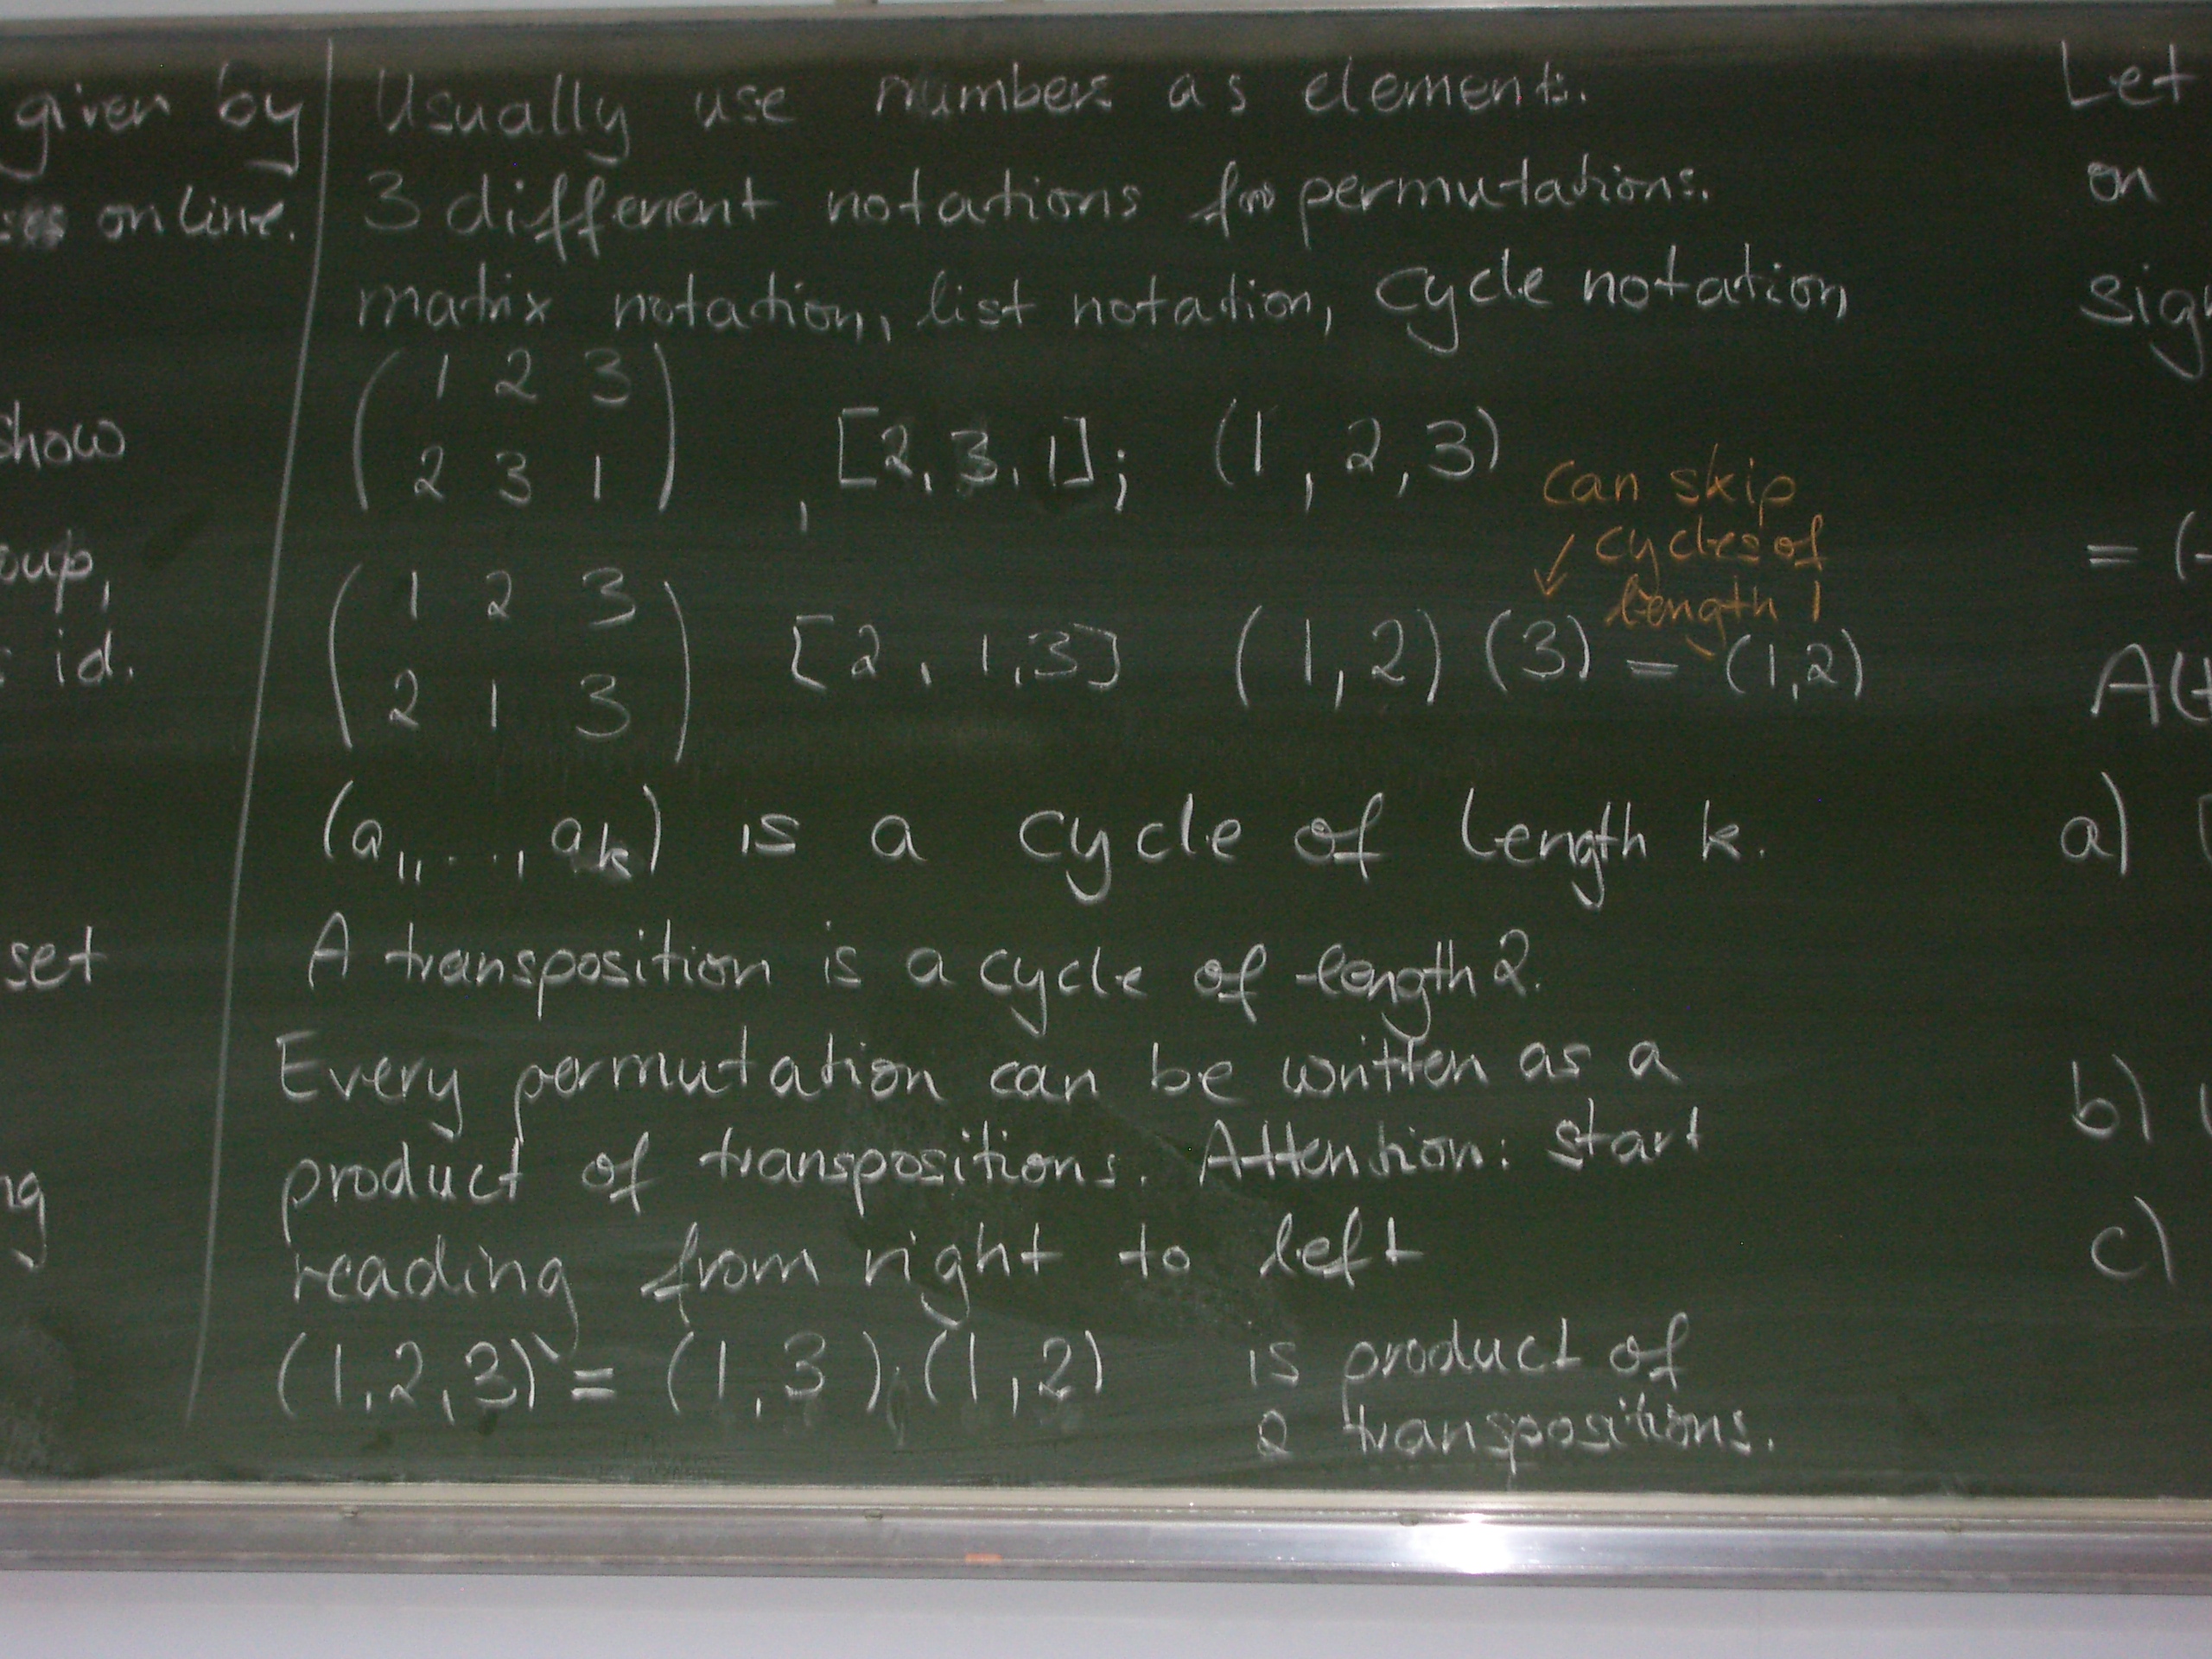 given by
on line.
show
oup,
id.
set
ng
Usually use numbers as elements.
3 different notations for permutations.
matrix notation, list notation, cycle notation
( 1 2 3 )
( 2 3 1 ) , [2,3,1]; (1,2,3)
can skip
↙ cycles of
length 1
( 1 2 3 )
( 2 1 3 ) [2,1,3] (1,2)(3) = (1,2)
(a₁,...,aₖ) is a cycle of length k.
A transposition is a cycle of length 2.
Every permutation can be written as a
product of transpositions. Attention: start
reading from right to left
(1,2,3) = (1,3).(1,2) is product of
2 transpositions.
Let
on
sig
= (
a)
b)
c)